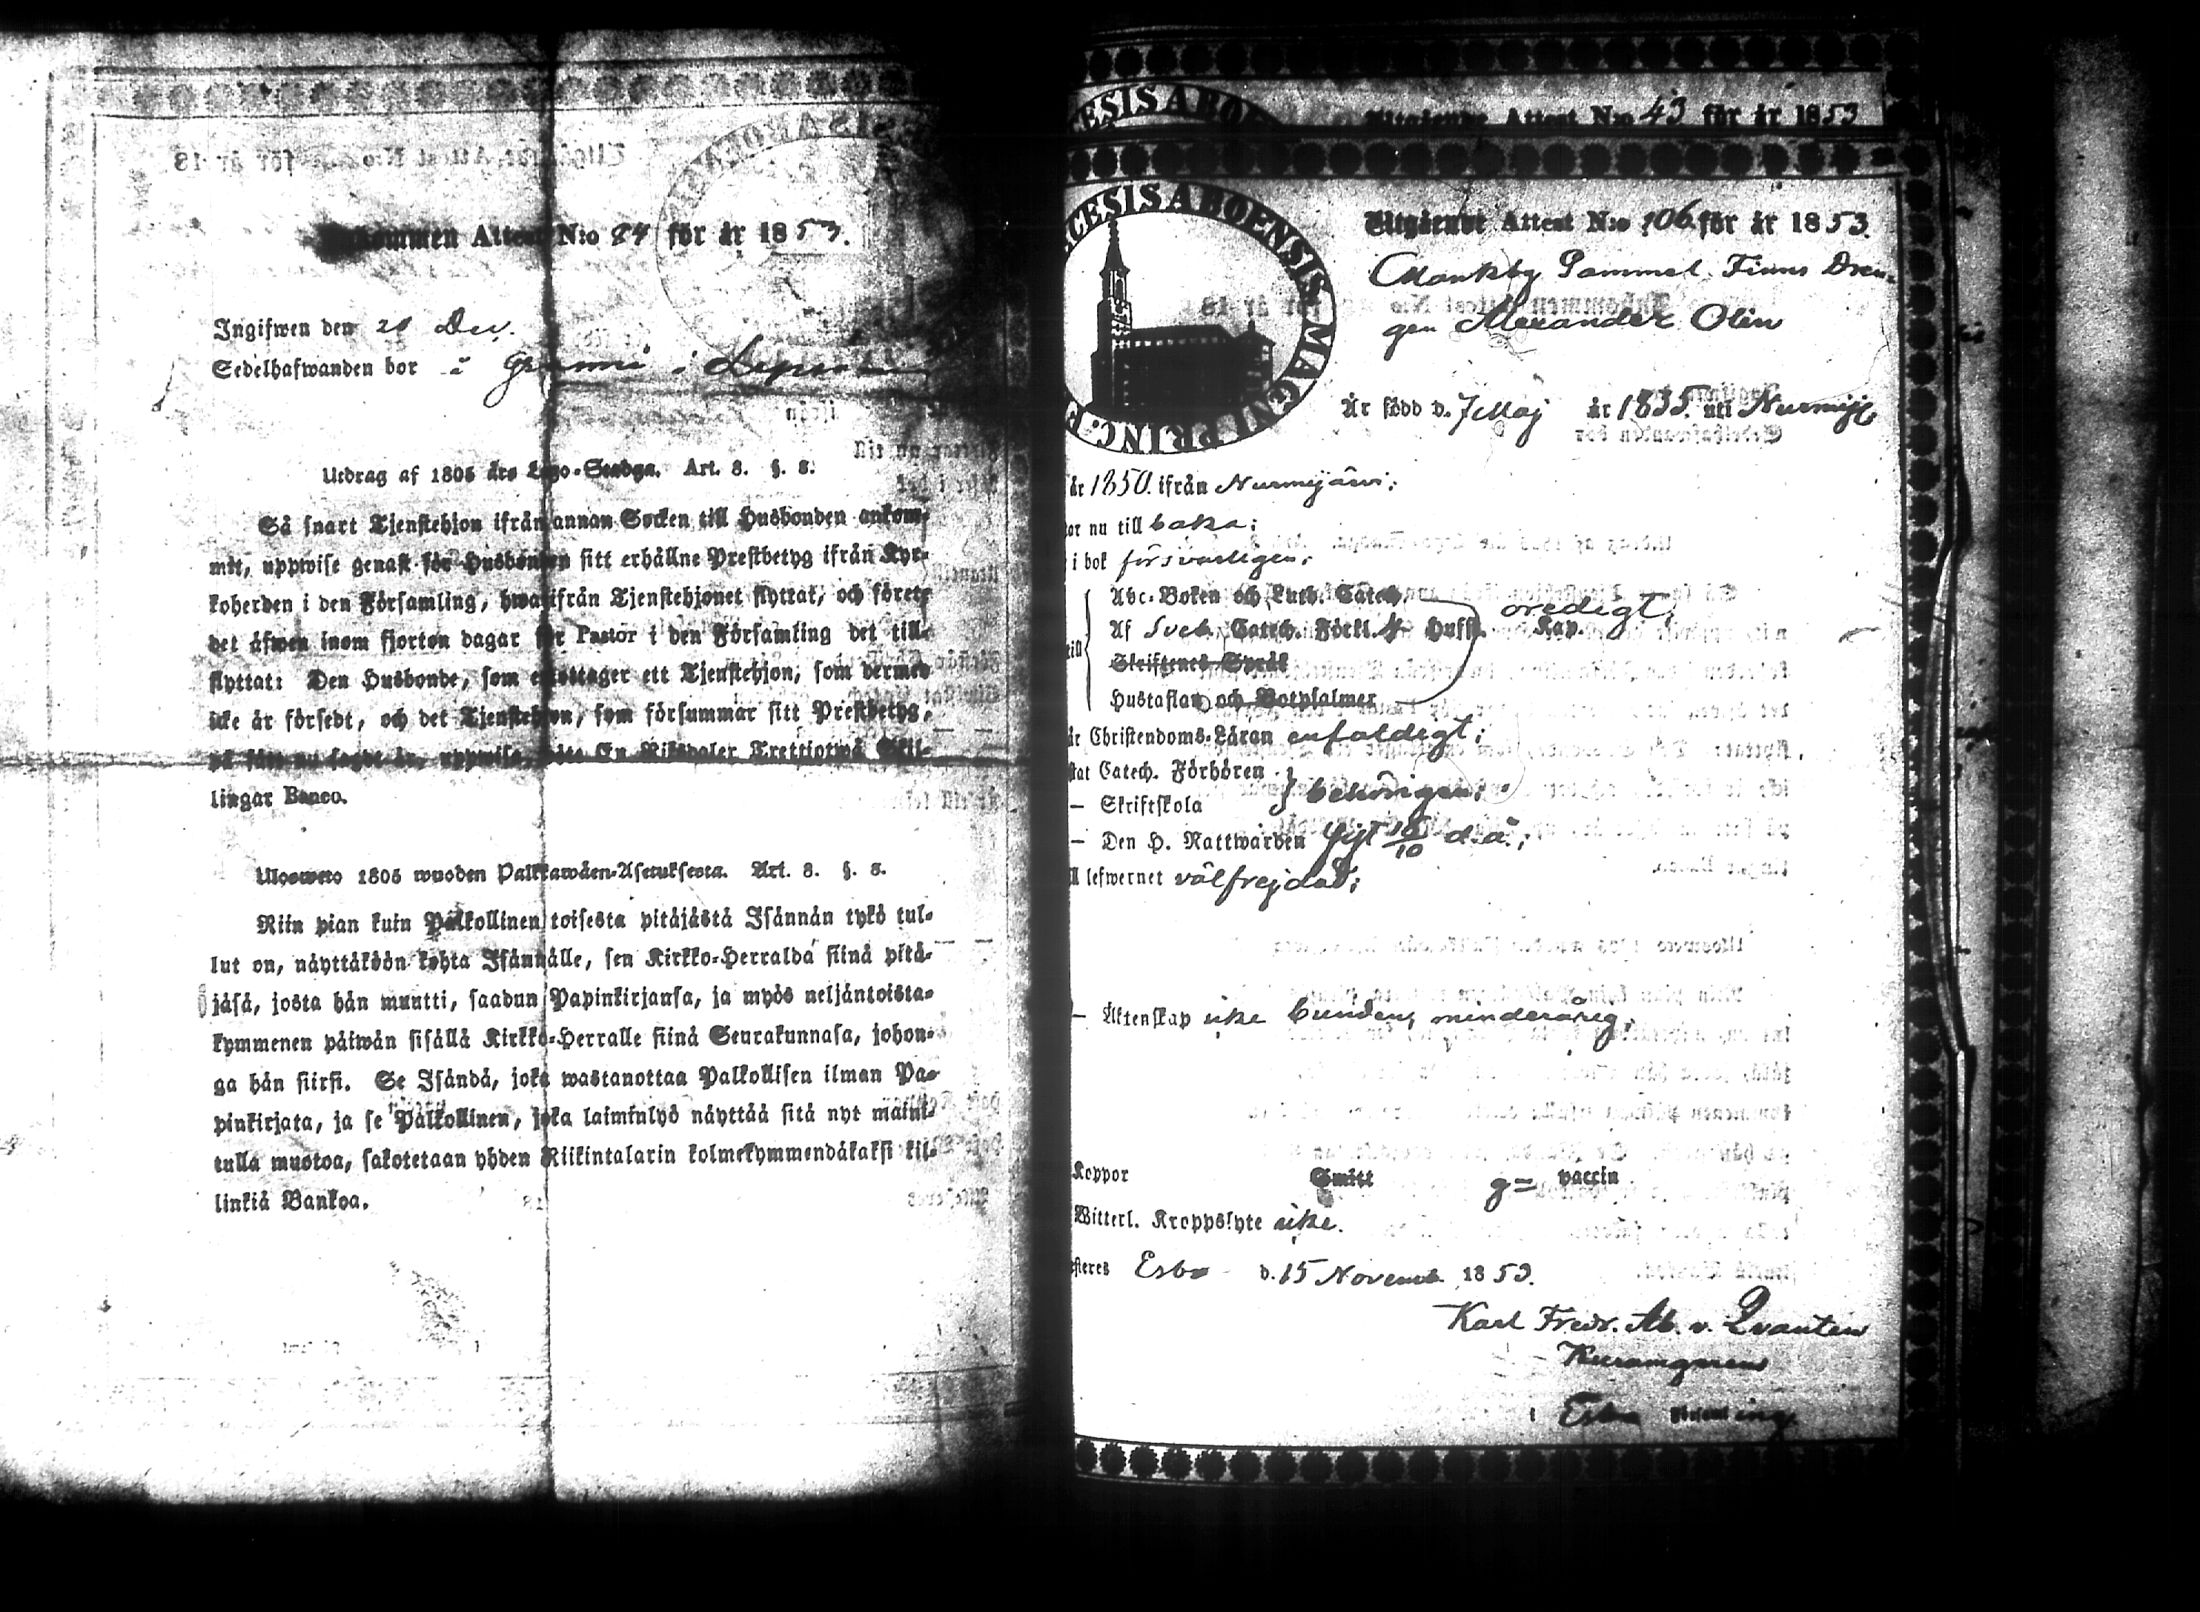 Inkommen Attest N:o 84 för år 1853.
Ingifwen den 28 Dec.
Sedelhafwanden bor i
Utdrag af 1805 års Lego-Stadga. Art. 8. §. 8.
Så snart Tjenstehjon ifrån annan Socken till Husbonden ankom-
mit, uppwise genast för Husbonden sitt erhållne Prestbetyg ifrån Kyr-
koherden i den Församling, hwarifrån Tjenstehjonet flyttat, och förete
det äfwen inom fjorton dagar för Pastor i den Församling det till-
flyttat: Den Husbonde, som emottager ett Tjenstehjon, som dermed
icke är försedt, och det Tjenstehjon, som försummar sitt Prestbetyg,
på sätt nu sagdt är, uppwisa, böte En Riksdaler Trettiotwå Skil-
lingar Banco.
Ulosweto 1805 wuoden Palkkawäen-Asetuksesta. Art. 8. §. 8.
Niin pian kuin Palkollinen toisesta pitäjästä Isännän tykö tul-
lut on, näyttäköön kohta Isännälle, sen Kirkko-Herralda siinä pitä-
jäsä, josta hän muutti, saadun Papinkirjansa, ja myös neljäntoista-
kymmenen päiwän sisällä Kirkko-Herralle siinä Seurakunnasa, johon-
ga hän siirsi. Se Isändä, joka wastanottaa Palkollisen ilman Pa-
pinkirjata, ja se Palkollinen, joka laiminlyö näyttää sitä nyt maini-
tulla muotoa, sakotetaan yhden Riikintalarin kolmekymmendäkaksi kil-
linkiä Bankoa.
CESIS ABOE
Utgående Attest N:o 43 för år 1853
CESIS ABOENSIS MAGNI PRINC. F
Utgående Attest N:o 106 för år 1853.
Mankby Gammel Finns Dren-
gen Alexander Olin
Är född d. 7 Maj år 1835. uti Nurmijb
år 1850. ifrån Nurmijärvi;
tar nu till baka;
i bok försvarligen;
Abc-Boken och Luth. Catech.
oredigt;
Af Sveb. Catech. Förkl. 4 Hufst. Kap.
till
Skriftenes Språk
Hustaflan och Botpsalmer
är Christendoms-Läran enfaldigt;
stat Catech. Förhören
behörigen;
— Skriftskola
— Den H. Nattwarden sist 16/10 d. å.;
ll lefwernet välfrejdad;
— Äktenskap icke bunden, minderårig;
Koppor Smitt g= vaccin
Witterl. Kroppslyte icke.
esteres Esbo d. 15 Novemb. 1853.
Karl Fredr. Ab. v. Qvanten
i Esbo Församl ing.